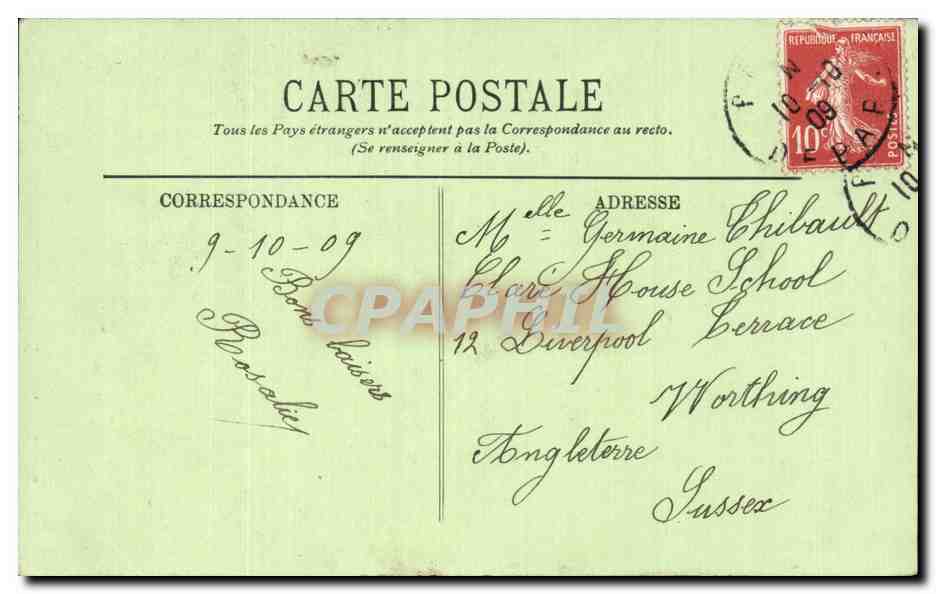 CARTE POSTALE
Tous les Pays étrangers n'acceptent pas la Correspondance au recto.
(Se renseigner à la Poste).
REPUBLIQUE FRANÇAISE
10c
POSTES
10 - 10
09
CORRESPONDANCE
9-10-09
Bons baisers
Rosalie
ADRESSE
Melle Germaine Thibault
Clare House School
12 Liverpool Terrace
Worthing
Angleterre
Sussex
CPAPHIL